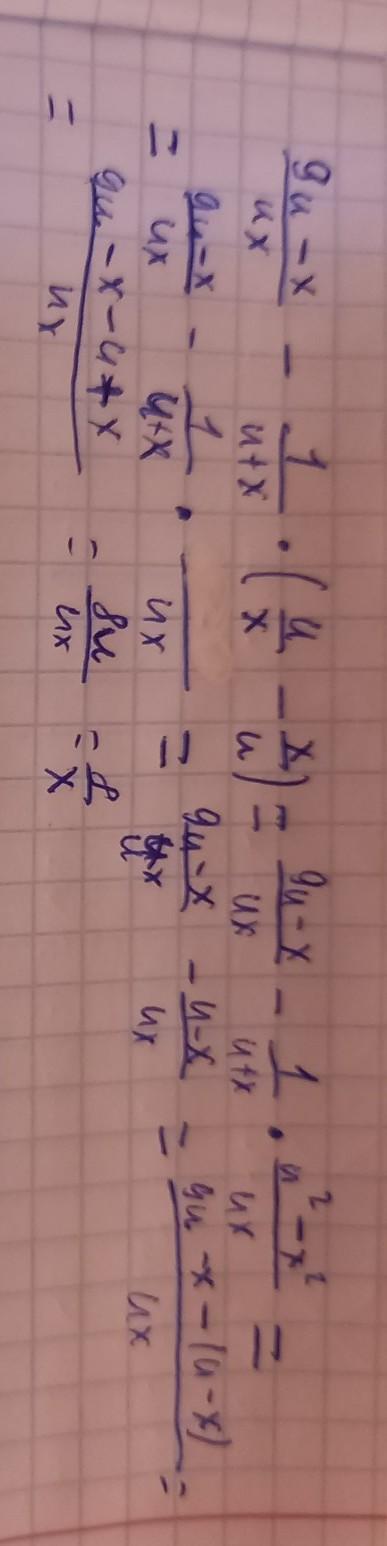 (9u - x)/(ux) - 1/(u+x) · (u/x - x/u) = (9u - x)/(ux) - 1/(u+x) · (u² - x²)/(ux) =
= (9u - x)/(ux) - 1/(u+x) · /(ux) = (9u - x)/(ux) - (u - x)/(ux) = (9u - x - (u - x))/(ux) =
= (9u - x - u + x)/(ux) = 8u/(ux) = 8/x